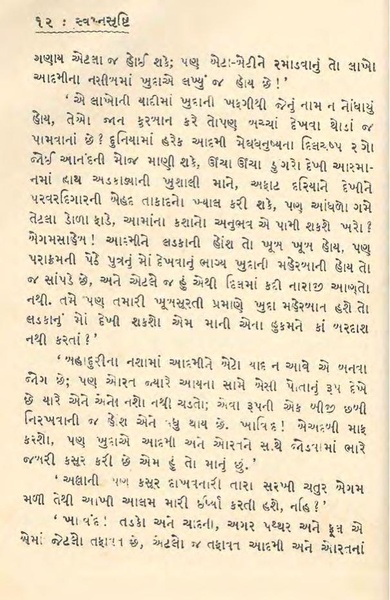 ૧૨ : સ્વપ્નસૃષ્ટિ
ગણાય એટલા જ હોઈ શકે; પણ બેટા-બેટીને રમાડવાનું તો લાખો
આદમીના નસીબમાં ખુદાએ લખ્યું જ હોય છે!'
' એ લાખોની યાદીમાં ખુદાની ખફગીથી જેનું નામ ન નોંધાયું
હોય, તેઓ જાન કુરબાન કરે તોપણ બચ્ચાં દેખવા થોડાં જ
પામવાનાં છે? દુનિયામાં હરેક આદમી મેઘધનુષ્યના દિલચસ્પ રંગો
જોઈ આનંદની મોજ માણી શકે, ઊંચા ઊંચા ડુંગરો દેખી આસ્મા-
નમાં હાથ અડકાડ્યાની ખુશાલી માને, અફાટ દરિયાને દેખીને
પરવરદિગારની બેહદ તાકાદનો ખ્યાલ કરી શકે, પણ આંધળો ગમે
તેટલા ડોળા ફાડે, આમાંના કશાનો અનુભવ એ પામી શકશે ખરો?
બેગમસાહેબ! આદમીને લડકાની હોંશ તો ખૂબ ખૂબ હોય, પણ
પરાક્રમની પેઠે પુત્રનું મોં દેખવાનું ભાગ્ય ખુદાની મહેરબાની હોય તો
જ સાંપડે છે, અને એટલે જ હું એથી દિલમાં કદી નારાજી આણતો
નથી. તમે પણ તમારી ખૂબસૂરતી પ્રમાણે ખુદા મહેરબાન હશે તો
લડકાનું મોં દેખી શકશો એમ માની એના હુકમને કાં બરદાશ
નથી કરતાં?'
' બહાદુરીના નશામાં આદમીને બેટો યાદ ન આવે એ બનવા
જોગ છે; પણ ઓરત જ્યારે આયના સામે બેસી પોતાનું રૂપ દેખે
છે ત્યારે એને એનો નશો નથી ચડતો; એવા રૂપની એક બીજી છબી
નિરખવાની જ હોંશ એને વધુ થાય છે. ખાવિંદ! બેઅદબી માફ
કરશો, પણ ખુદાએ આદમી અને ઓરતને સાથે જોડવામાં ભારે
જબરી કસૂર કરી છે એમ હું તો માનું છું.'
' અલ્લાની પણ કસૂર દાખવનારી તારા સરખી ચતુર બેગમ
મળી તેથી આખી આલમ મારી ઈર્ષ્યા કરતી હશે, નહિ?'
' ખાવંદ! તડકો અને ચાંદની, અગર પથ્થર અને ફૂલ એ
બેમાં જેટલો તફાવત છે, એટલો જ તફાવત આદમી અને ઓરતનાં